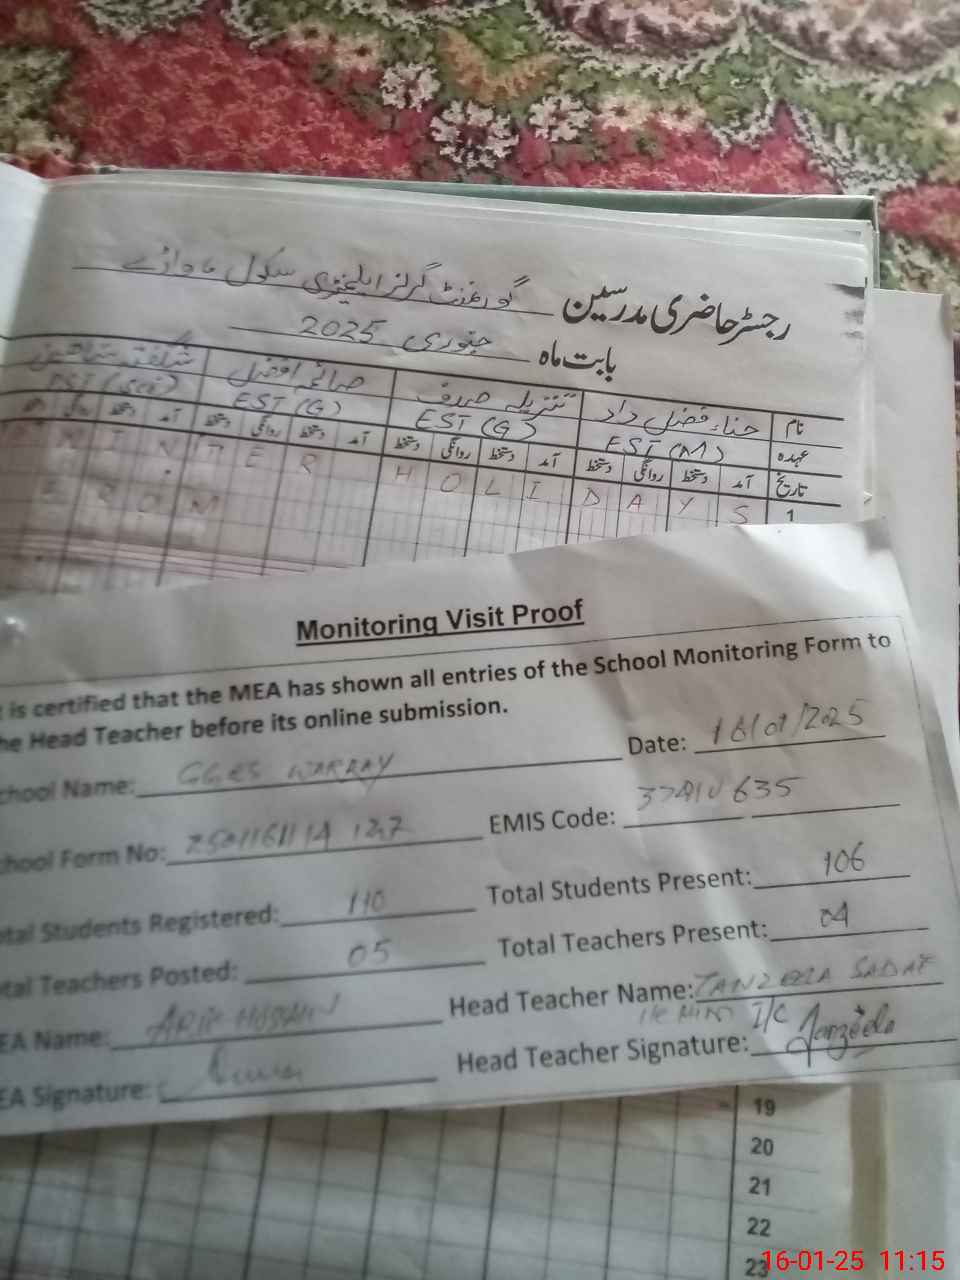 رجسٹر حاضری مدرسین گورنمنٹ گرلز ایلیمنٹری سکول
بابت ماہ جنوری 2025
نام حناء فضل داد تنزیلہ صدف صائمہ افضل
عہدہ EST (M) EST (G) EST (G)
تاریخ آمد دستخط روانگی دستخط آمد دستخط روانگی دستخط آمد دستخط روانگی دستخط آمد دستخط روانگی
1
W I N T E R H O L I D A Y S
F R O M
Monitoring Visit Proof
is certified that the MEA has shown all entries of the School Monitoring Form to
he Head Teacher before its online submission.
chool Name: GGES WARRAY Date: 16/01/2025
chool Form No: EMIS Code: 37410635
otal Students Registered: 110 Total Students Present: 106
tal Teachers Posted: 05 Total Teachers Present: 04
EA Name: ARIF HUSSAIN Head Teacher Name: TANZEELA SADAF
I/C
EA Signature: Head Teacher Signature: Tanzeela
19
20
21
22
23
16-01-25 11:15